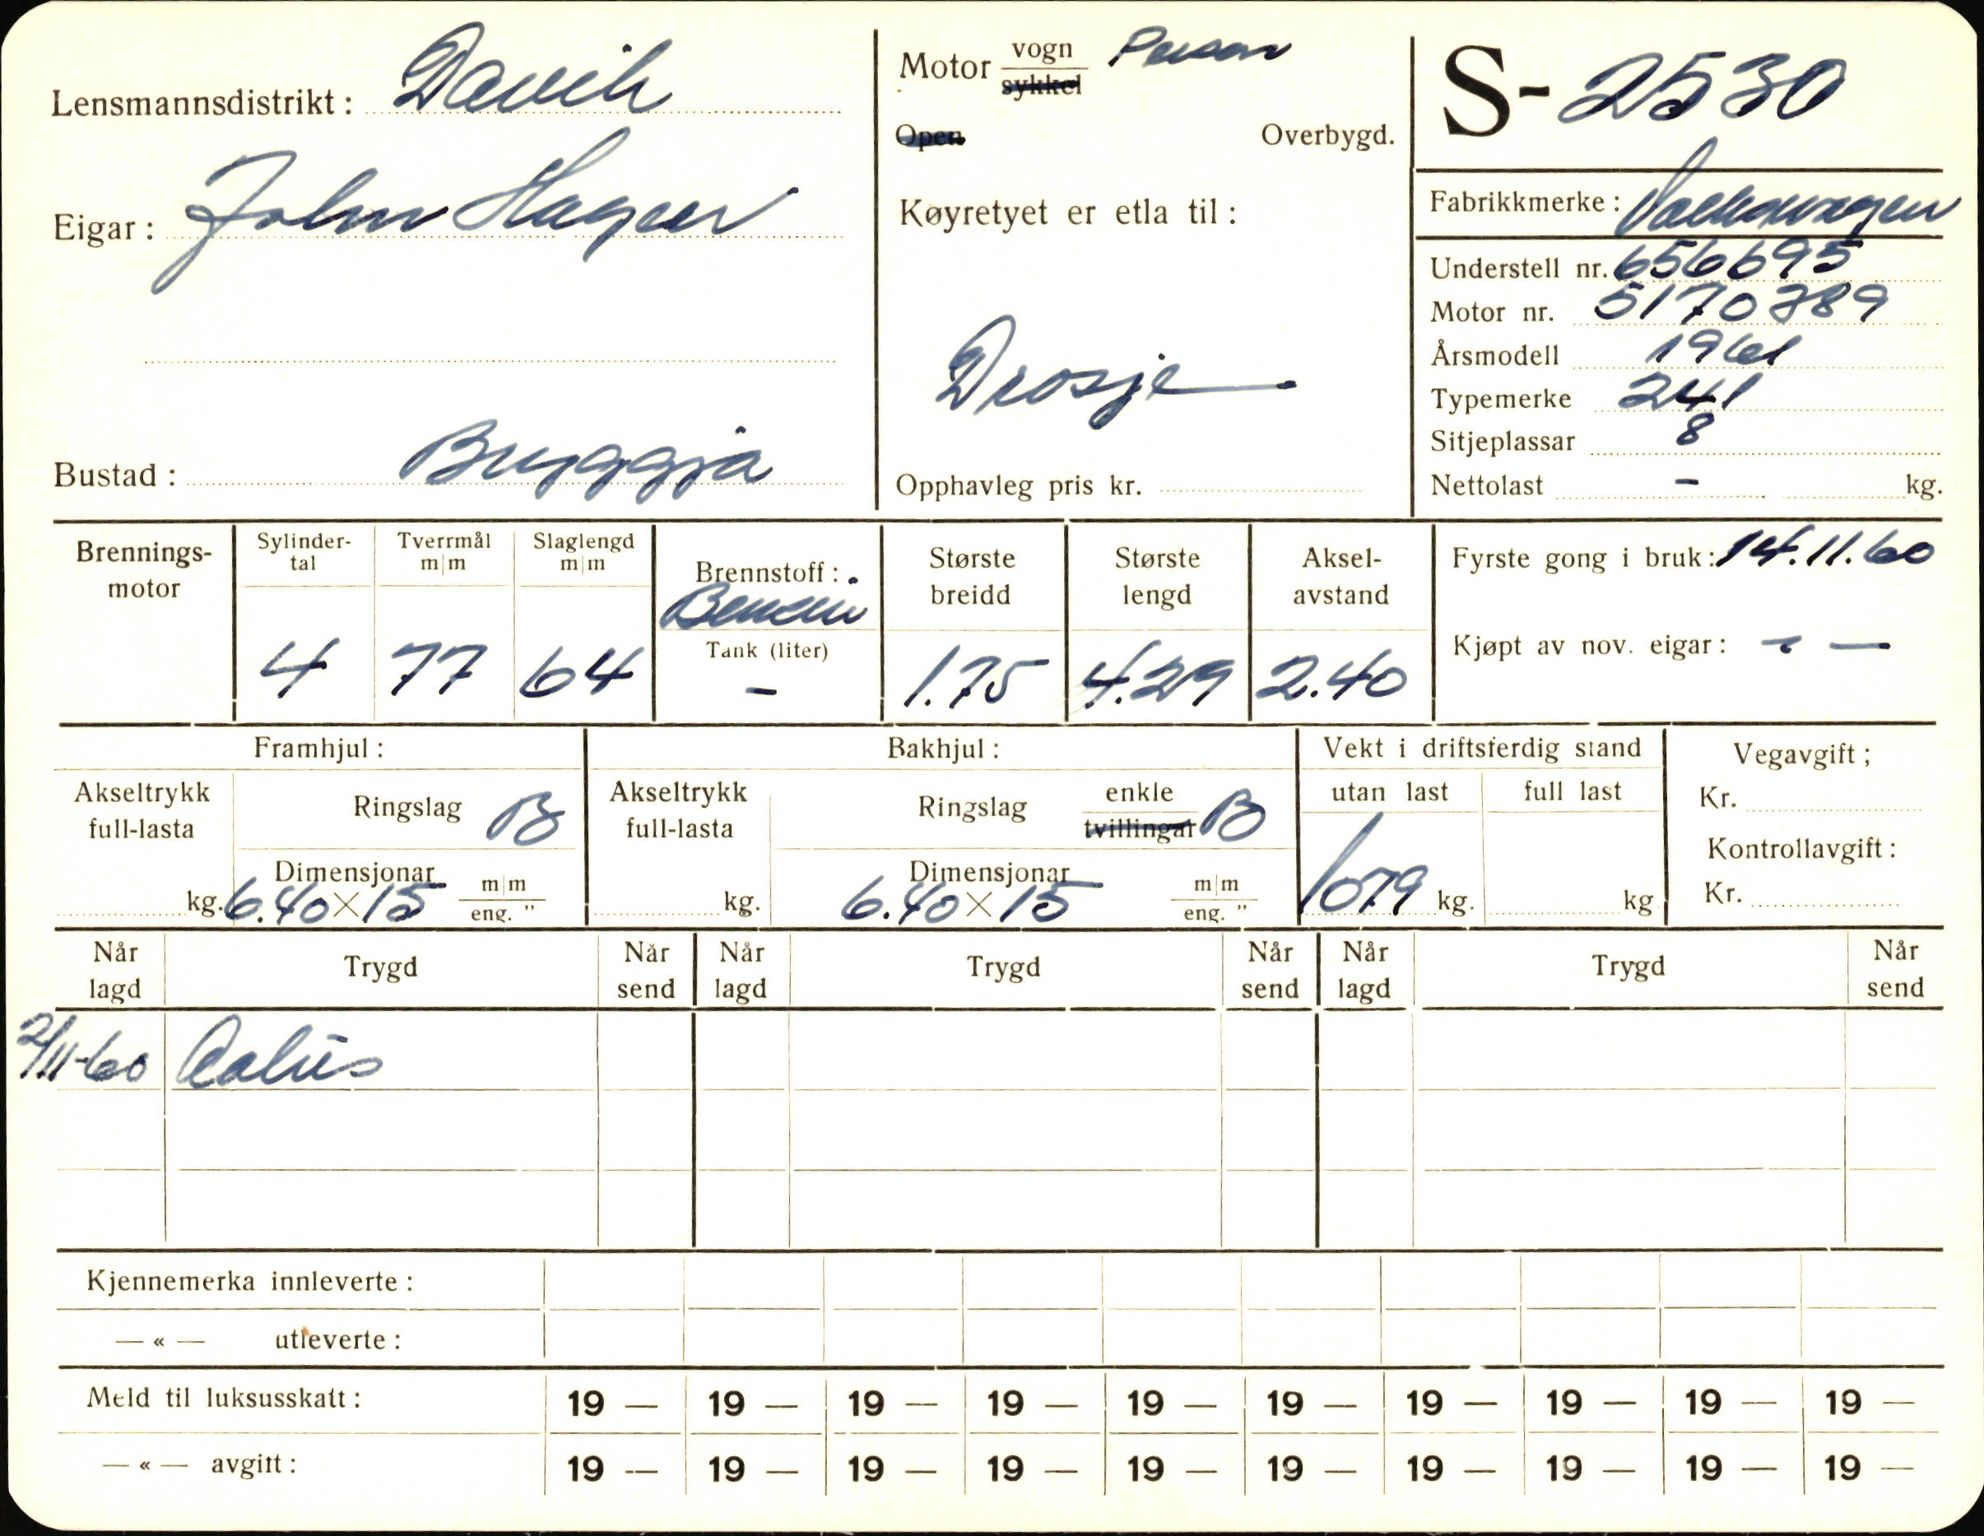 Lensmannsdistrikt: Davik
Eigar: John Hagen
Bustad: Bryggja
Motor vogn Person
sykkel
Open Overbygd.
Køyretyet er etla til:
Drosje
Opphavleg pris kr.
S-2530
Fabrikkmerke: Volkswagen
Understell nr. 656695
Motor nr. 5170789
Årsmodell 1961
Typemerke 241
Sitjeplassar 8
Nettolast - kg.
Brennings-
motor
Sylinder-
tal
4
Tverrmål
m|m
77
Slaglengd
m|m
64
Brennstoff:
Bensin
Tank (liter)
-
Største
breidd
1.75
Største
lengd
4.29
Aksel-
avstand
2.40
Fyrste gong i bruk: 14.11.60
Kjøpt av nov. eigar: - -
Framhjul:
Akseltrykk
full-lasta
kg.
Ringslag B
Dimensjonar
6.40 × 15 m|m
eng. "
Bakhjul:
Akseltrykk
full-lasta
kg.
Ringslag enkle
tvillingar B
Dimensjonar
6.40 × 15 m|m
eng. "
Vekt i driftsferdig stand
utan last full last
1079 kg. kg
Vegavgift;
Kr.
Kontrollavgift:
Kr.
Når
lagd Trygd Når
send Når
lagd Trygd Når
send Når
lagd Trygd Når
send
2/11-60
Kjennemerka innleverte:
— « — utleverte:
Meld til luksusskatt: 19 — 19 — 19 — 19 — 19 — 19 — 19 — 19 — 19 — 19 —
— « — avgift: 19 — 19 — 19 — 19 — 19 — 19 — 19 — 19 — 19 — 19 —